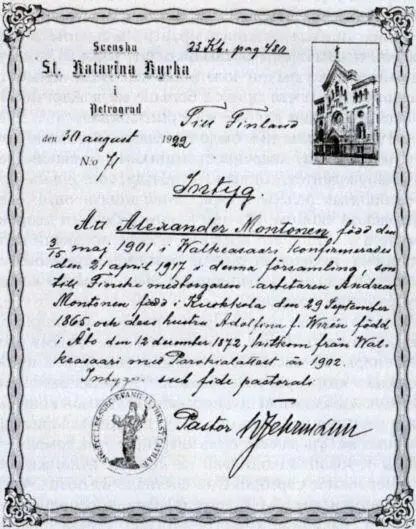 Svenska
22 Kb. pag 480
St. Katarina Kyrka
i
Petrograd
Till Finland
den 30 august 1922
No 71
Intyg
Att Alexander Montonen född den
3/15 maj 1901 i Walkeasaari konfirmerad
den 21 april 1917 i denna församling, son
till Finske medborgaren arbetaren Andreas
Montonen född i Kuokkola den 29 September
1865 och dess hustru Adolfina f. Wirén född
i Åbo den 12 december 1872, hitkom från Wal-
keasaari med Parokialattest år 1902.
Intygar sub fide pastorali
Pastor